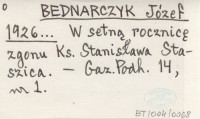 BEDNARCZYK Józef
1926... W setną rocznicę
zgonu Ks. Stanisława Sta-
szica. – Gaz. Podh. 14,
nr 1.
BT/004/0068